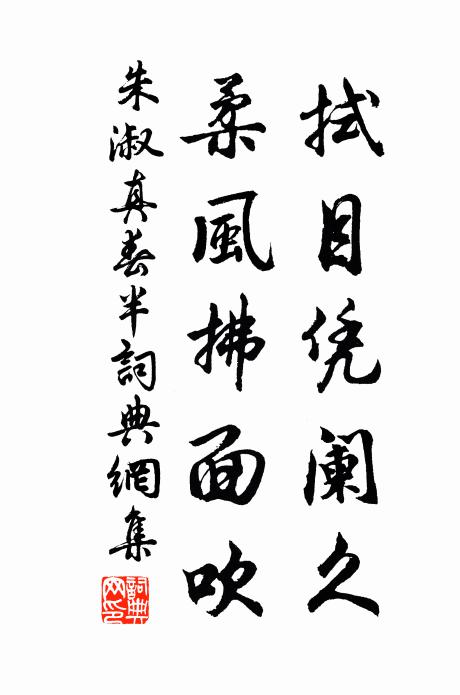 拭目凭阑久
柔風拂面吹
朱淑真春半詞典網集
詞典网印